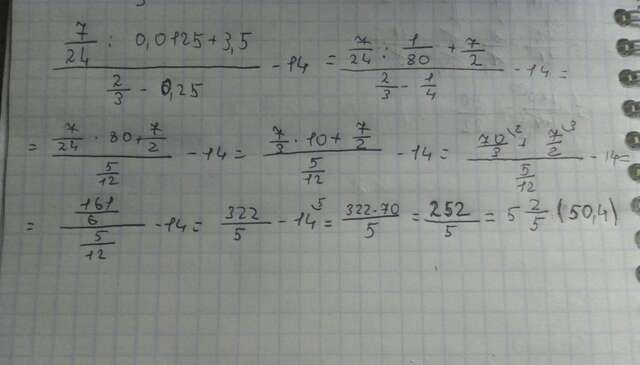 (7/24 : 0,0125+3,5)/(2/3 - 0,25) - 14 = (7/24 : 1/80 + 7/2)/(2/3 - 1/4) - 14 =
= (7/24 · 80 + 7/2)/(5/12) - 14 = (7/3 · 10 + 7/2)/(5/12) - 14 = (70/3 ² + 7/2 ³)/(5/12) - 14 =
= (161/6)/(5/12) - 14 = 322/5 - 14 ⁵ = (322-70)/5 = 252/5 = 5 2/5 (50,4)